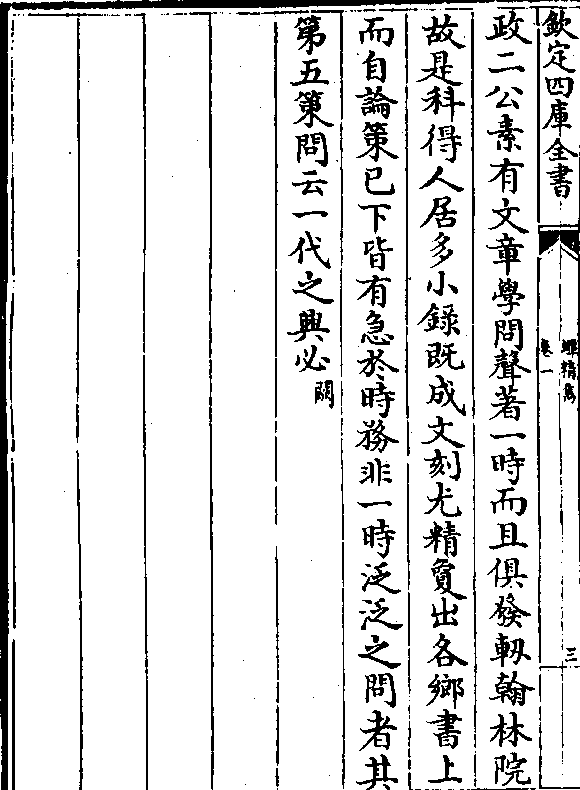 欽定四庫全書
蟫精雋
卷一
三
政二公素有文章學問聲著一時而且俱發軔翰林院
故是科得人居多小錄既成文刻尤精夐出各鄉書上
而自論策已下皆有急於時務非一時泛泛之問者其
第五策問云一代之興必闕